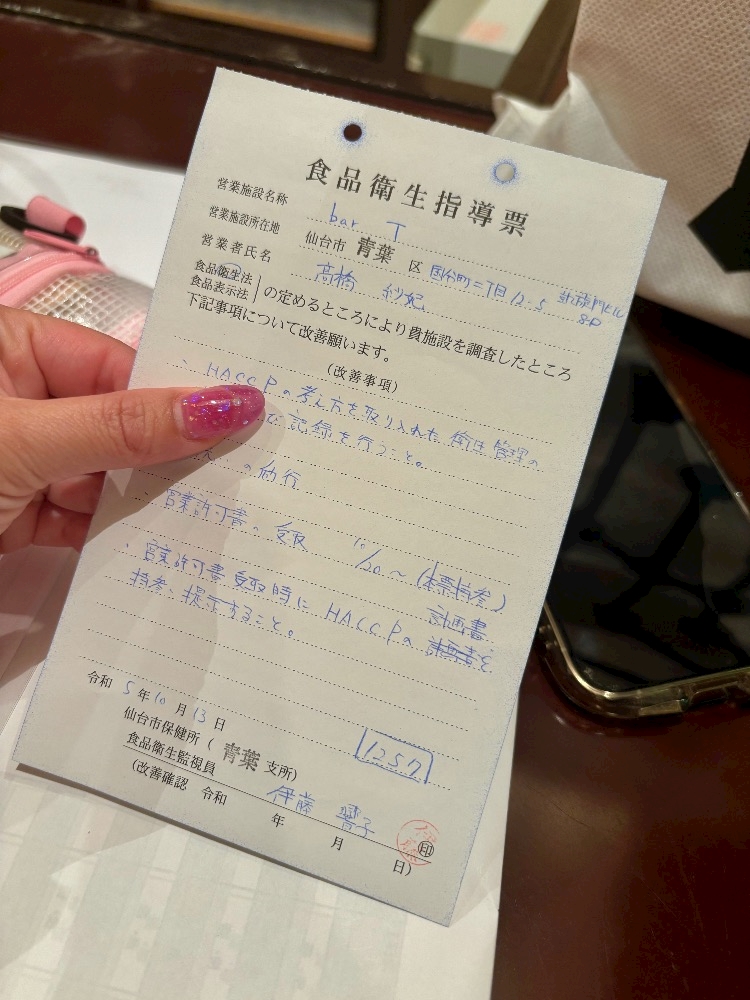 食品衛生指導票
営業施設名称 bar T
営業施設所在地 仙台市 青葉 区 国分町二丁目12-5
営業者氏名 高橋 紗妃
食品衛生法
食品表示法
の定めるところにより貴施設を調査したところ
下記事項について改善願います。
(改善事項)
・HACCPの考え方を取り入れた衛生管理の
び記録を行うこと。
の他行
営業許可書の受取 10/20〜(本票持参)
・営業許可書受取時にHACCPの計画書を
持参、提示すること。
令和 5 年 10 月 13 日
1257
仙台市保健所( 青葉 支所)
食品衛生監視員 伊藤 響子 ㊞
(改善確認 令和 年 月 日)